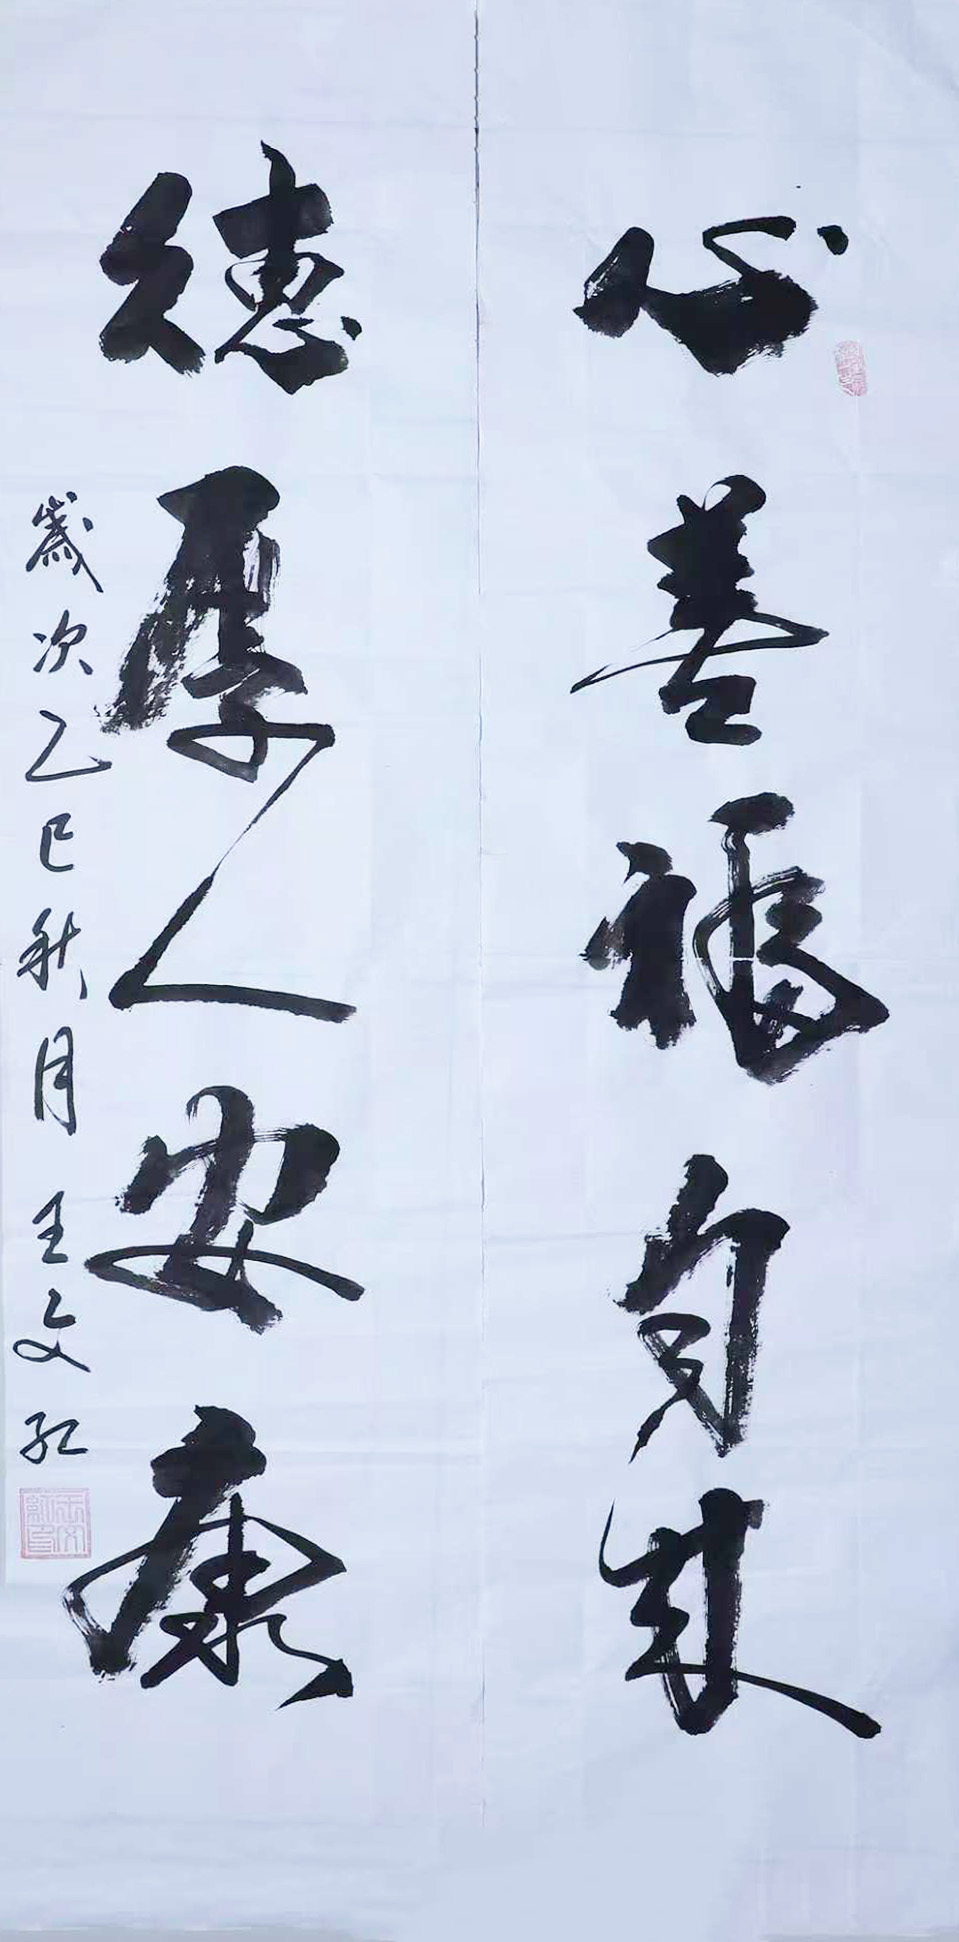 心善福自来
德厚人安康
歲次乙巳秋月王文红